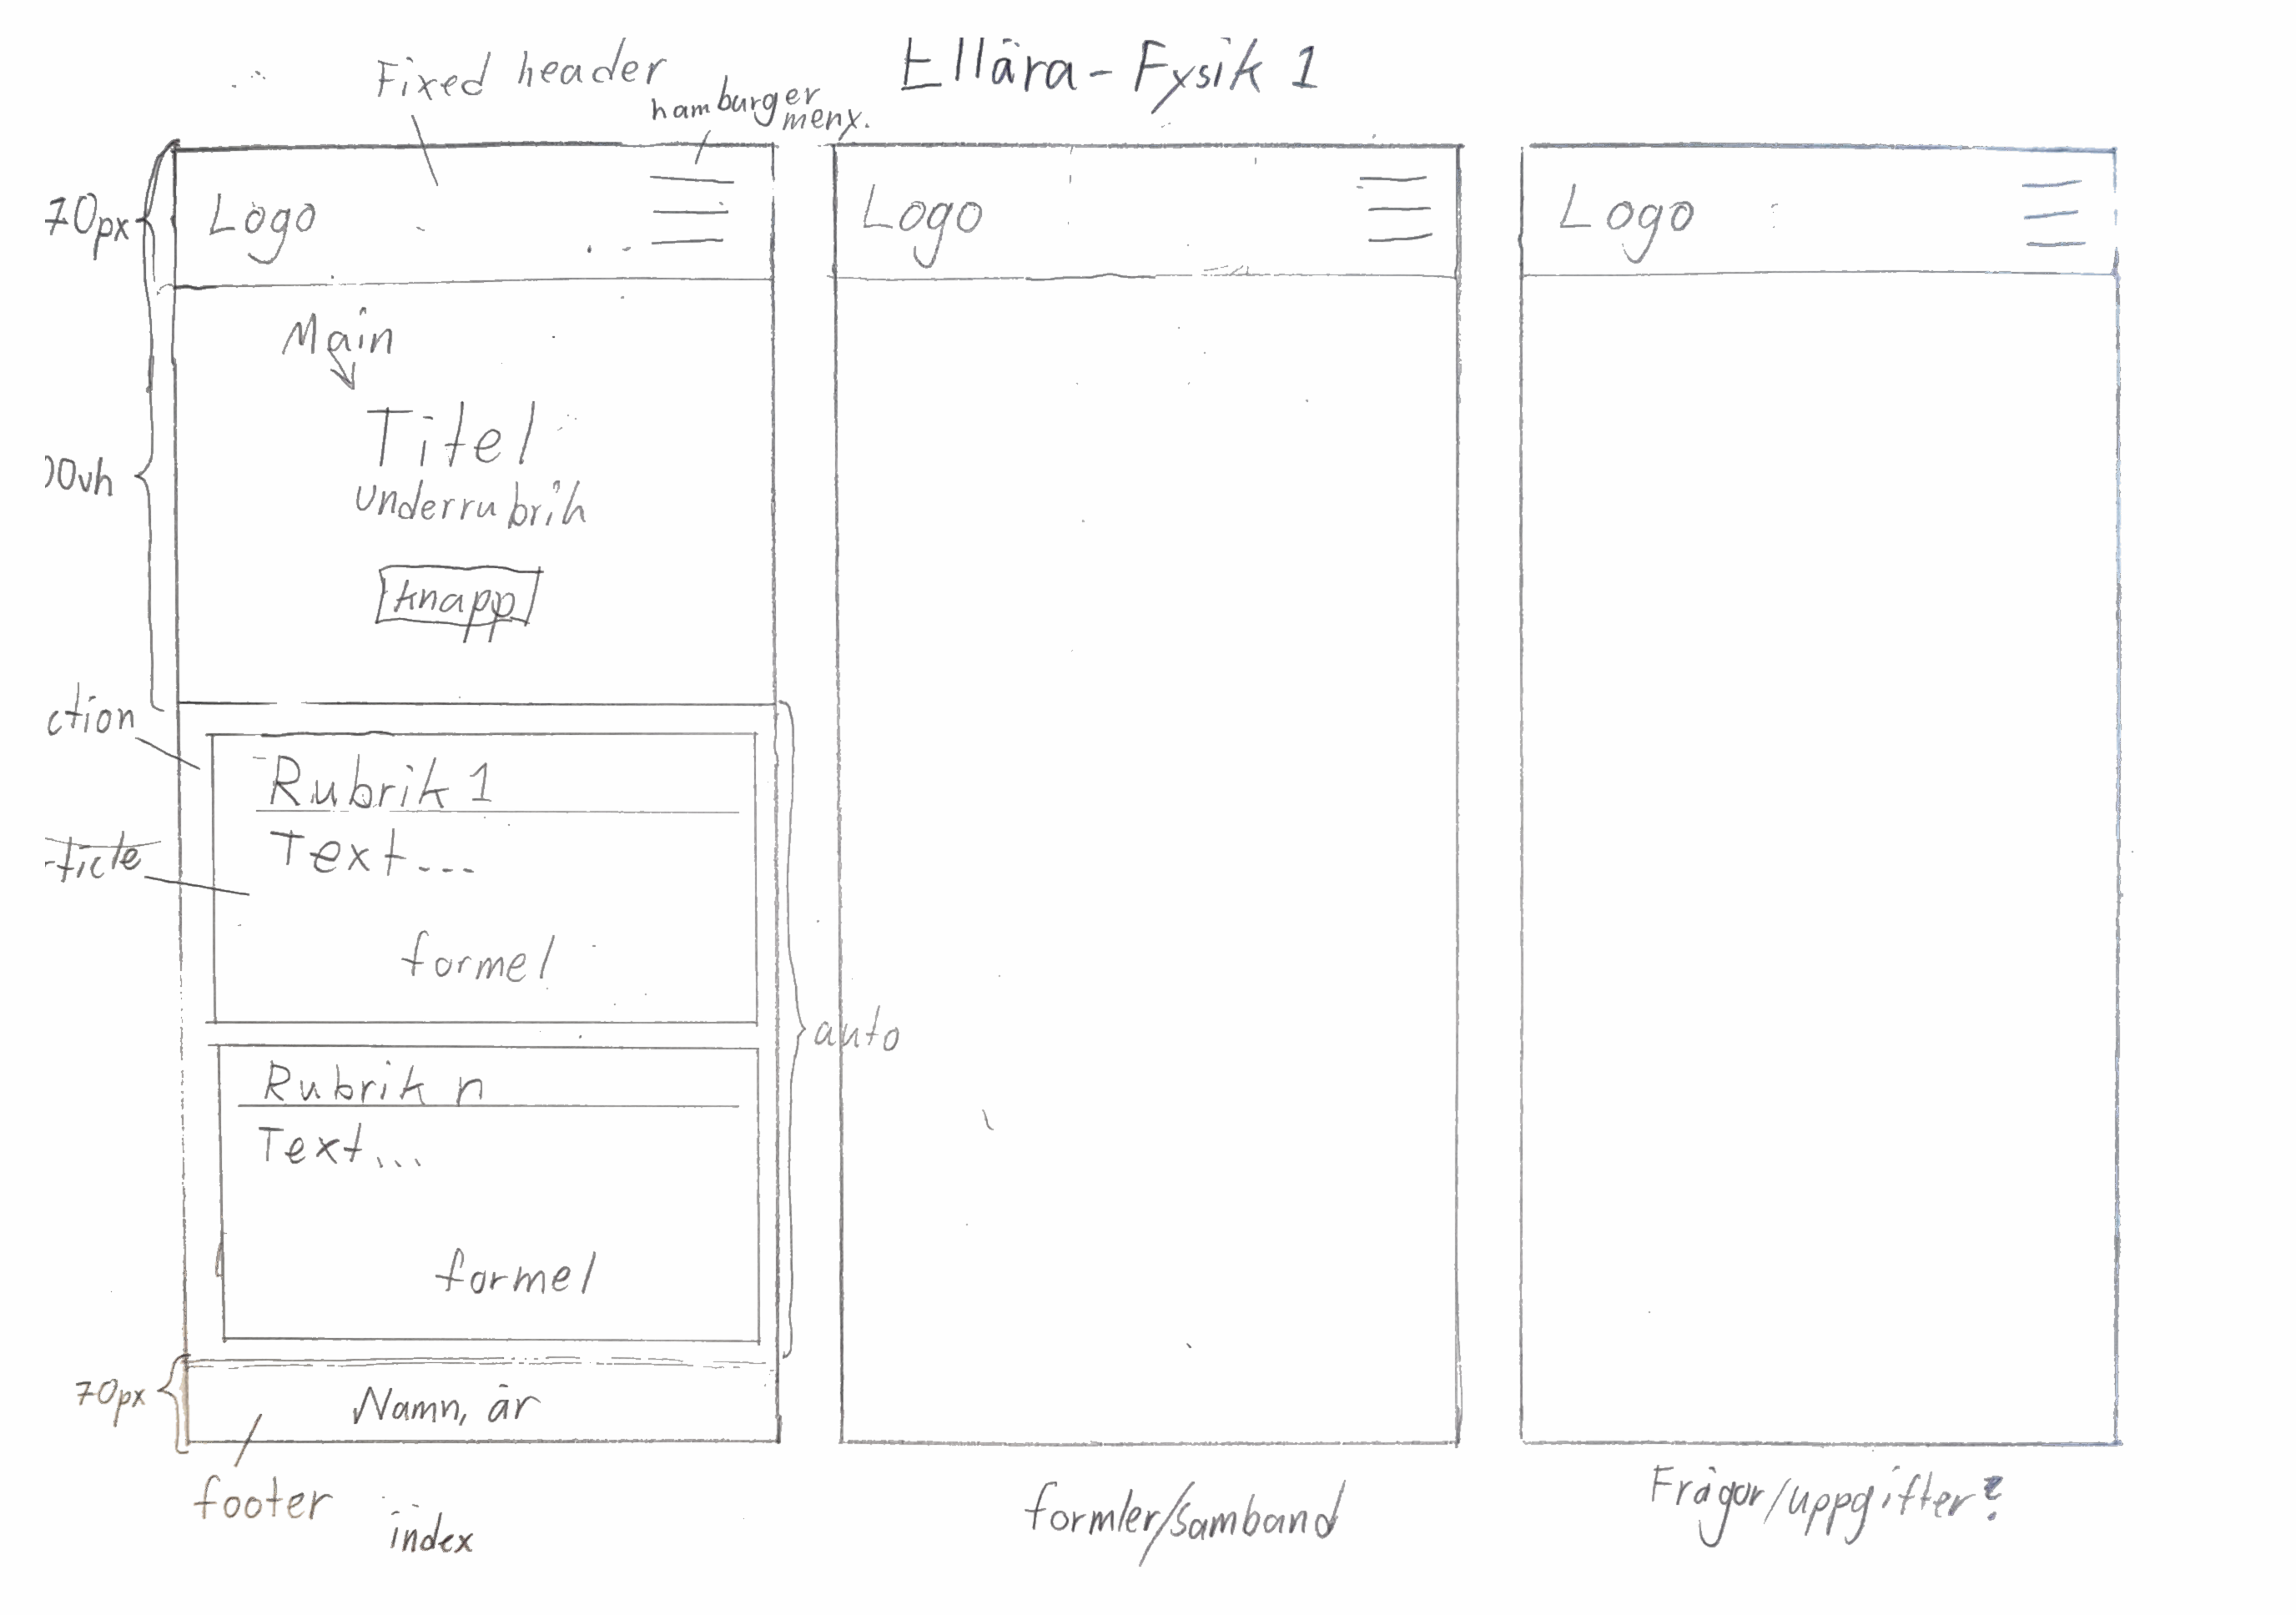 Ellära - Fysik 1
Fixed header
hamburger
meny.
70px
Logo
Main
Titel
underrubrik
knapp
00vh
ction
Rubrik 1
Text...
ticle
formel
auto
Rubrik n
Text...
formel
70px
Namn, år
footer
index
Logo
formler/samband
Logo
Frågor/uppgifter?